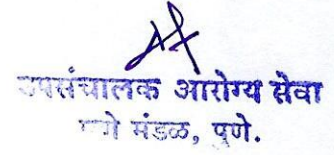 उपसंचालक आरोग्य सेवा
पुणे मंडळ, पुणे.